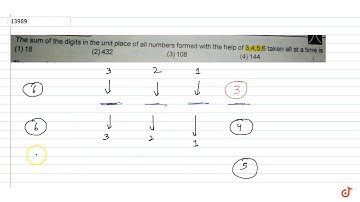 13989
The sum of the digits in the unit place of all numbers formed with the help of 3,4,5,6 taken all at a time is
(1) 18 (2) 432 (3) 108 (4) 144
3 2 1
6 3
6 4
3 2 1
5